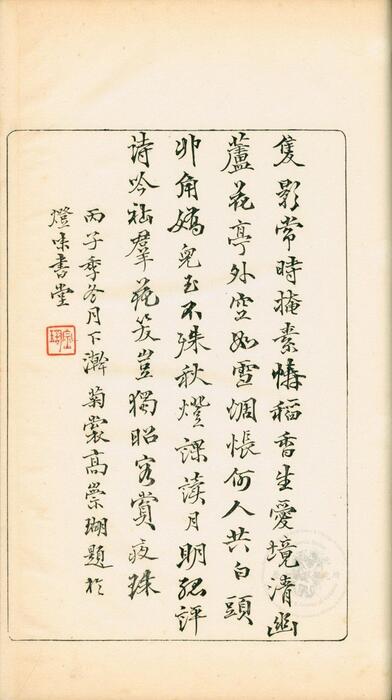 隻影常時掩素幬稻香生愛境清幽
蘆花亭外空如雪惆悵何人共白頭
丱角嬌兒玉不殊秋燈課讀月明孤評
詩吟社羣花笑豈獨昭容賞夜珠
丙子季冬月下澣菊裳高崇瑚題於
燈味書堂